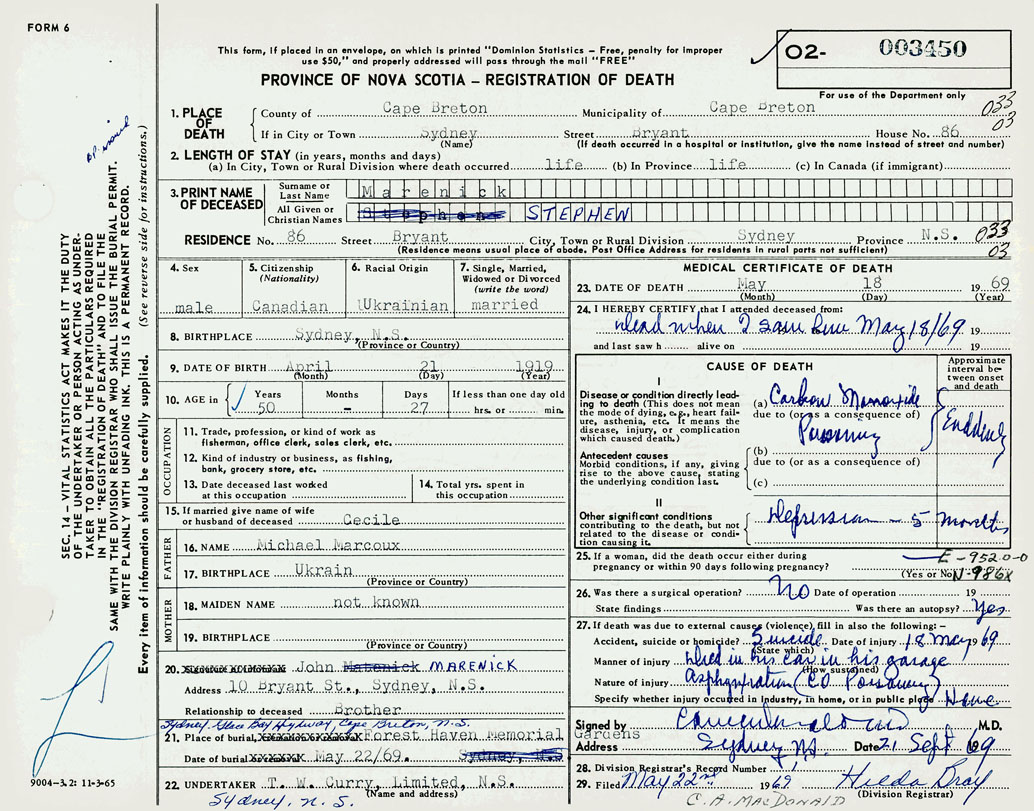 FORM 6
This form, if placed in an envelope, on which is printed "Dominion Statistics – Free, penalty for improper
use $50," and properly addressed will pass through the mail "FREE"
PROVINCE OF NOVA SCOTIA – REGISTRATION OF DEATH
O2- 003450
For use of the Department only
1. PLACE OF DEATH
County of Cape Breton Municipality of Cape Breton 033
If in City or Town Sydney Street Bryant House No. 86 03
(Name) (If death occurred in a hospital or institution, give the name instead of street and number)
2. LENGTH OF STAY (in years, months and days)
(a) In City, Town or Rural Division where death occurred life (b) In Province life (c) In Canada (if immigrant)
3. PRINT NAME OF DECEASED
Surname or Last Name Marenick
All Given or Christian Names Stephen STEPHEN
RESIDENCE No. 86 Street Bryant City, Town or Rural Division Sydney Province N.S. 033
(Residence means usual place of abode. Post Office Address for residents in rural parts not sufficient) 03
4. Sex
male
5. Citizenship
(Nationality)
Canadian
6. Racial Origin
Ukrainian
7. Single, Married,
Widowed or Divorced
(write the word)
married
8. BIRTHPLACE Sydney, N.S.
(Province or Country)
9. DATE OF BIRTH April 21 1919
(Month) (Day) (Year)
10. AGE in
Years 50
Months -
Days 27
If less than one day old
hrs. or min.
OCCUPATION
11. Trade, profession, or kind of work as
fisherman, office clerk, sales clerk, etc.
12. Kind of industry or business, as fishing,
bank, grocery store, etc.
13. Date deceased last worked
at this occupation
14. Total yrs. spent in
this occupation
15. If married give name of wife
or husband of deceased Cecile
FATHER
16. NAME Michael Marcoux
17. BIRTHPLACE Ukrain
(Province or Country)
MOTHER
18. MAIDEN NAME not known
19. BIRTHPLACE
(Province or Country)
20. John Matenick MARENICK
Address 10 Bryant St., Sydney, N.S.
Relationship to deceased Brother
Sydney Glace Bay Highway, Cape Breton, N.S.
21. Place of burial, Forest Haven Memorial
Gardens
Date of burial May 22/69. Sydney, N.S
22. UNDERTAKER T. W. Curry, Limited, N.S.
(Name and address)
Sydney, N.S.
MEDICAL CERTIFICATE OF DEATH
23. DATE OF DEATH May 18 1969
(Month) (Day) (Year)
24. I HEREBY CERTIFY that I attended deceased from:
Dead when I saw him May 18/69 19
and last saw h alive on 19
CAUSE OF DEATH
Approximate
interval be-
tween onset
and death
I
Disease or condition directly lead-
ing to death (This does not mean
the mode of dying, e.g., heart fail-
ure, asthenia, etc. It means the
disease, injury, or complication
which caused death.)
(a) Carbon Monoxide
due to (or as a consequence of)
Poisoning
Suddenly
Antecedent causes
Morbid conditions, if any, giving
rise to the above cause, stating
the underlying condition last.
(b)
due to (or as a consequence of)
(c)
II
Other significant conditions
contributing to the death, but not
related to the disease or condi-
tion causing it.
Depression – 5 months
25. If a woman, did the death occur either during
pregnancy or within 90 days following pregnancy?
(Yes or No)
E-952.0-0
N-986X
26. Was there a surgical operation? No Date of operation 19
State findings Was there an autopsy? Yes
27. If death was due to external causes (violence) fill in also the following:–
Accident, suicide or homicide? Suicide Date of injury 18 May 1969
(State which)
Manner of injury Died in his car in his garage
(How sustained)
Nature of injury Asphyxiation (CO Poisoning)
Specify whether injury occurred in industry, in home, or in public place Home
Signed by M.D.
Address Sydney NS. Date 21 Sept 1969
28. Division Registrar's Record Number
29. Filed May 22nd 1969 Hilda Bray
(Division Registrar)
C. A. MACDONALD
SEC. 14 – VITAL STATISTICS ACT MAKES IT THE DUTY
OF THE UNDERTAKER OR PERSON ACTING AS UNDER-
TAKER TO OBTAIN ALL THE PARTICULARS REQUIRED
IN THE "REGISTRATION OF DEATH" AND TO FILE THE
SAME WITH THE DIVISION REGISTRAR WHO SHALL ISSUE THE BURIAL PERMIT.
WRITE PLAINLY WITH UNFADING INK. THIS IS A PERMANENT RECORD.
Every item of information should be carefully supplied. (See reverse side for instructions.)
9004–3.2: 11-3-65